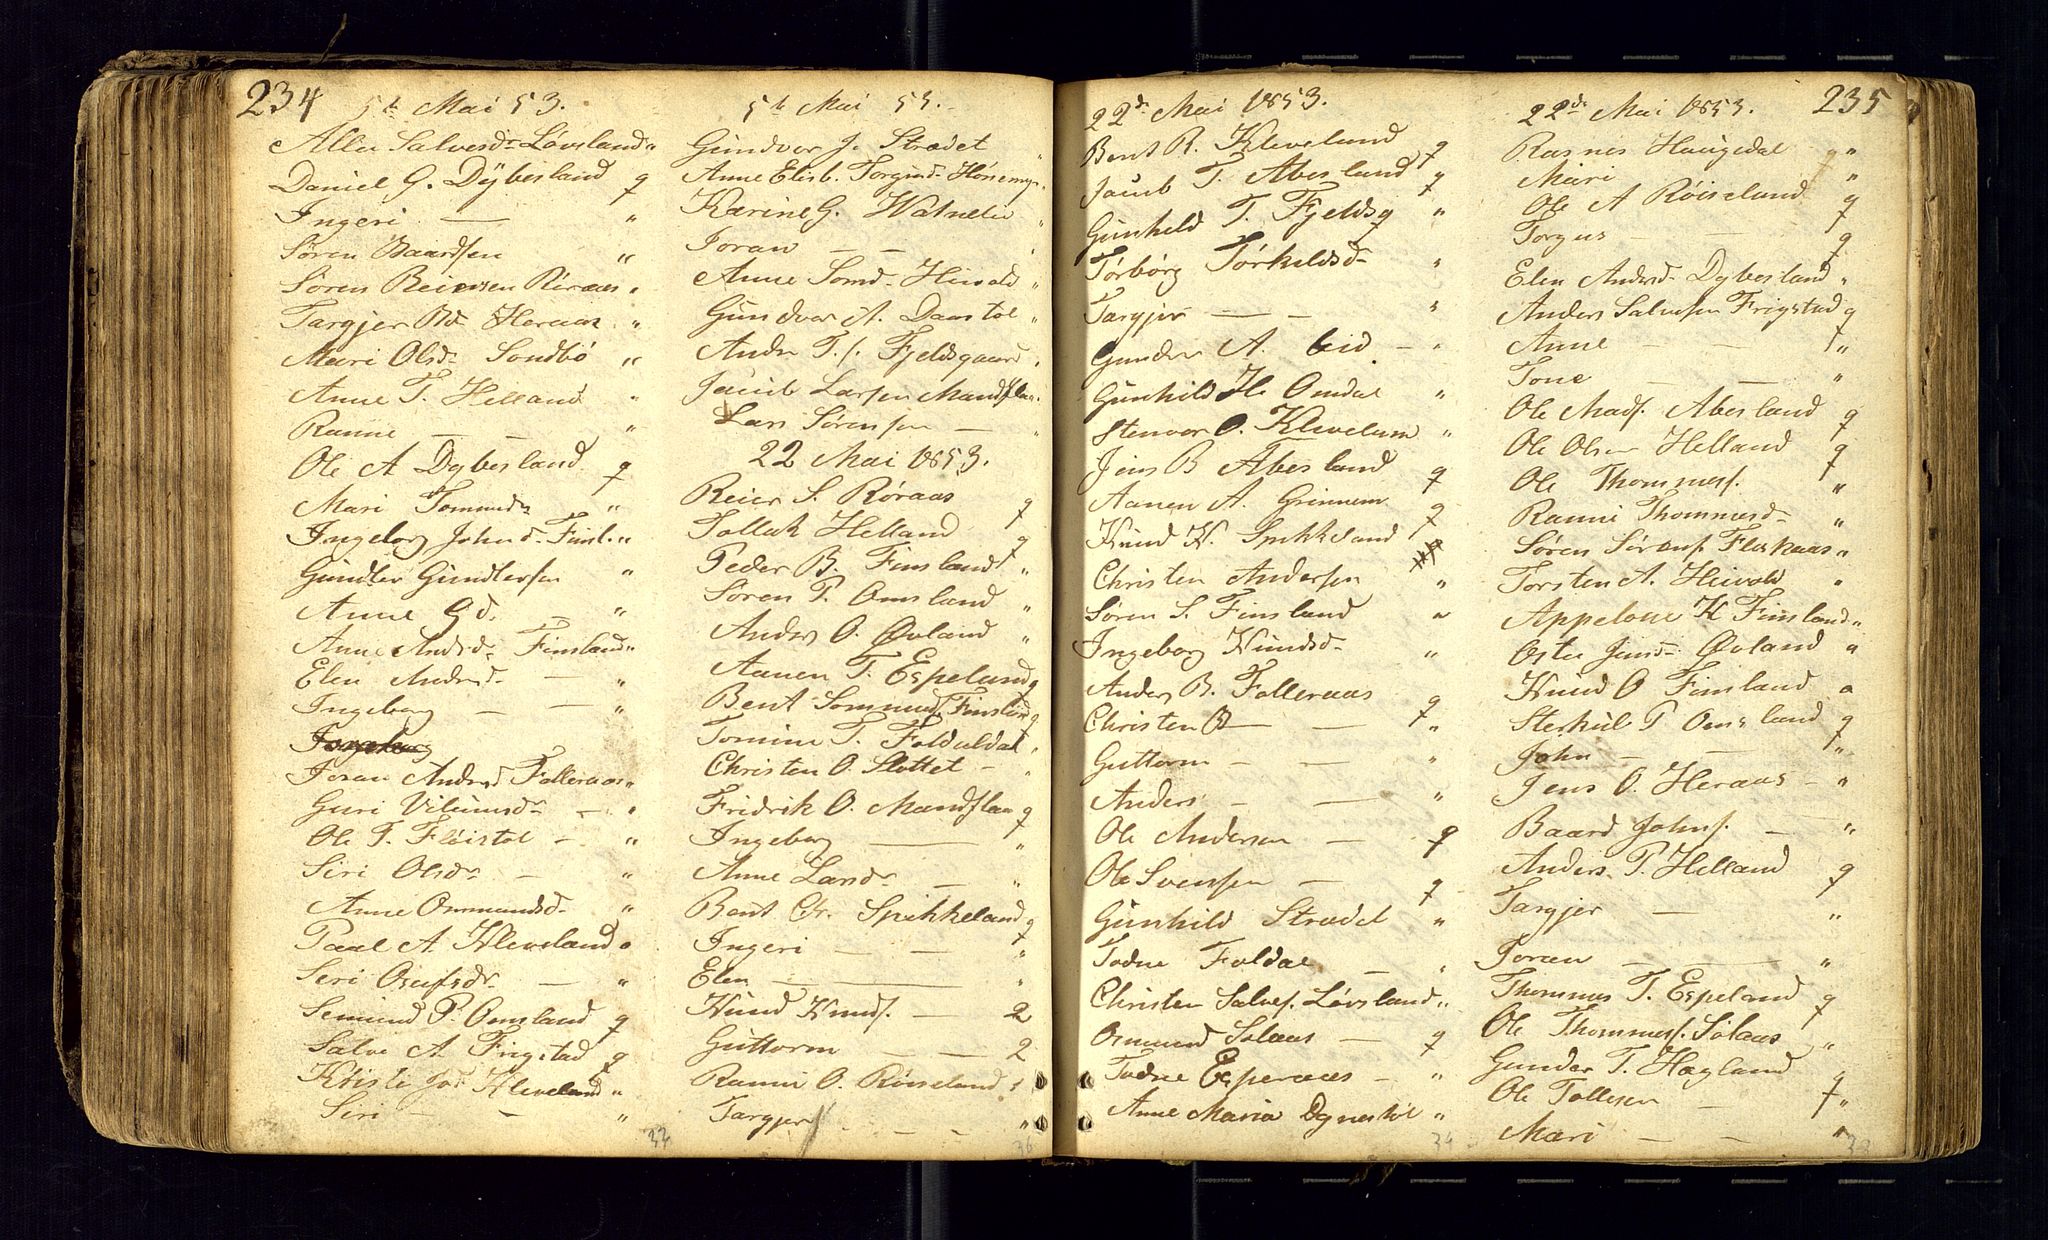 234
5te Mai 53.
Alle Salvesdr Løvsland "
Daniel G. Dybesland q
Ingeri — "
Søren Baardsen "
Søren Reiersen Røraas "
Targjer Bd Heraas "
Mari Olsdr Sondbø "
Anne T. Helland "
Ranne — — "
Ole A Dybesland q
Mari Tommesdr "
Ingeborg Johnsd. Finsl. "
Gundler Gundlersen "
Anne Gd. — "
Anne Andsd. Finsland "
Elen Andrsd. — "
Ingeborg — — "
Joran Andrsd Folleraas "
Guri Vilumsdr — "
Ole T. Fløistøl — "
Siri Olsdr — "
Anne Ommundsd. "
Paal A Kleveland "
Siri Osufsdr — "
Semund P. Omsland q
Salve A. Frigstad q
Kristi Jd Kleveland "
Siri — — "
32
5te Mai 53.
Gundvor J. Strædet "
Anne Elisb. Torgiusd. Hønemyr "
Karine G. Watnelie "
Joran — — "
Anne Somd. Heivold "
Gundvor A. Daastøl "
Andr T.s. Fjeldsgaard "
Jacob Larsen Mandflaa "
Lars Sørensen — "
22 Mai 1853.
Reier S. Røraas q
Tollak Helland q
Peder B. Finsland "
Søren P. Omsland "
Anders O. Øvland "
Aanen T. Espeland q
Bent Sommunds. Finsland q
Tomine T. Folduldal "
Christen O. Slottet — "
Fridrik O. Mandflaa q
Ingeborg — "
Anne Larsdr — "
Bent Chr. Spikkeland q
Ingeri — — "
Elen — "
Knud Knuds. — 2
Guttorm — — 2
Ranni O. Røiseland "
Targjer — — — "
36
22de Mai 1853.
Bent R. Kleveland q
Jacob T. Abesland q
Gunhild T. Fjeldsg "
Tørbørg Tørkildsd. "
Targjer — — "
Gunder A. Eid — "
Gunhild H. Omdal "
Stenvor O. Klevelum "
Jens B. Abesland q
Aanen A. Grinnem q
Knud K. Spikkeland q
Christen Andersen "
Søren S. Finsland "
Ingeborg Knudsd. "
Anders B. Folleraas q
Christen B — — "
Guttorm — — "
Anders — — "
Ole Andersen — q
Ole Svensen — q
Gunhild Strædet "
Todne Foldal — "
Christen Salves. Løvsland "
Osmund Solaas — q
Todne Esperaas — "
Anne Maria Dynestøl "
34
22de Mai 1853.
235
Rasnes Haugedal q "
Mari "
Ole A Røiseland q
Torgus — — q
Elen Andrsd. Dybesland "
Anders Salvesen Frigstad q
Anne — — "
Tone — — "
Ole Mads. Abesland q
Ole Olsen Helland q
Ole Thommess. "
Ranni Thommesd. "
Søren Sørens. Fleskaas "
Torsten A. Heivold "
Appelone K Finsland "
Oste Jensd. Øvland "
Knud O Finsland "
Sterkul P. Omsland q
John — — "
Jens O. Heraas — "
Baard Johns. — "
Anders P. Helland q
Targjer — "
Joran — — "
Thommes T. Espeland q
Ole Thommess. Solaas "
Gunder T. Hægland q
Ole Tollesen — "
Mari — — "
32